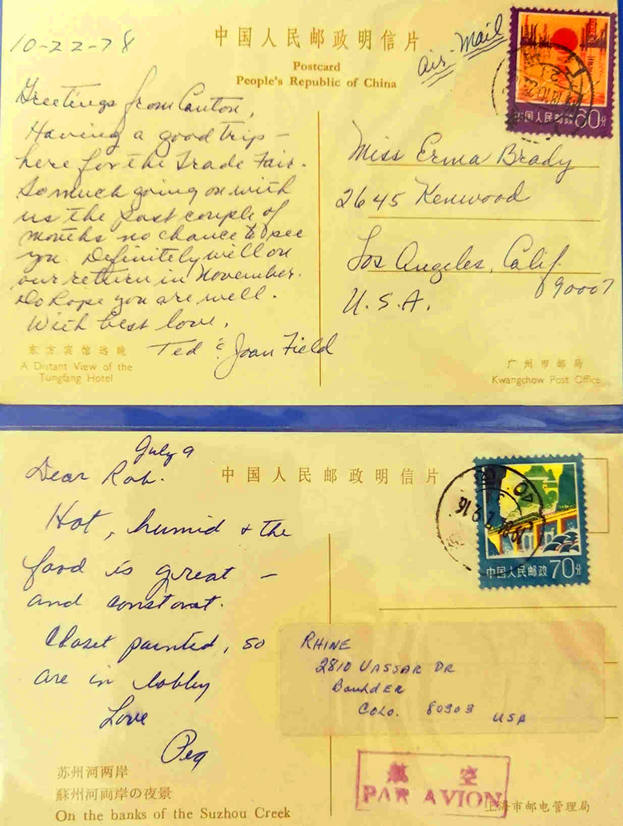 10-22-78
中国人民邮政明信片
Postcard
People's Republic of China
Air Mail
中国人民邮政 60分
Greetings from Canton,
Having a good trip –
here for the Trade Fair.
So much going on with
us the past couple of
months no chance to see
you. Definitely will on
our return in November.
Do hope you are well.
With best love,
Ted & Joan Field
Miss Erma Brady
2645 Kenwood
Los Angeles, Calif.
90007
U.S.A.
东方宾馆远眺
A Distant View of the
Tungfang Hotel
广州市邮局
Kwangchow Post Office
July 9
中国人民邮政明信片
中国人民邮政 70分
Dear Rob.
Hot, humid & the
food is great –
and constant.
Closet painted, so
are in lobby
Love
Peg
RHINE
2810 VASSAR DR
BOULDER
COLO. 80303 USA
苏州河两岸
蘇州河両岸の夜景
On the banks of the Suzhou Creek
航空
PAR AVION
上海市邮电管理局